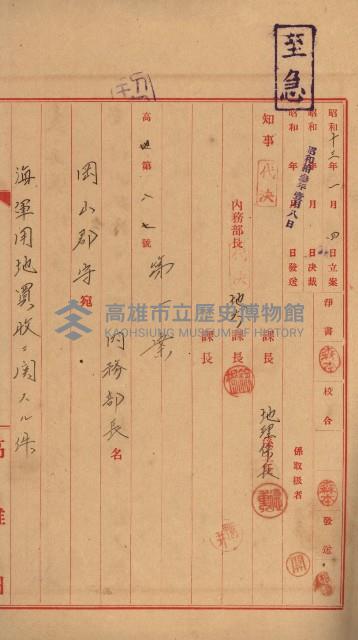 至急
昭和十三年一月四日立案
昭和 年 月 日決裁
昭和 年 月 日發送
昭和拾參年壹月八日
淨書
校合
發送
係取扱者
知事 代決
內務部長 代決
地方課長
課長
課長
地理係長
高地第八七號
第一案
內務部長名
岡山郡守宛
海軍用地買收ニ関スル件
高雄市立歷史博物館
KAOHSIUNG MUSEUM OF HISTORY
高雄州